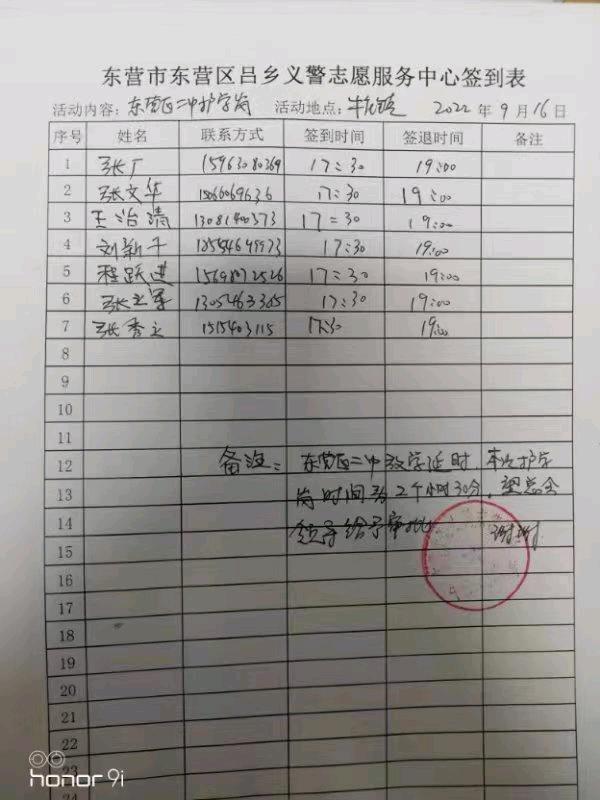 东营市东营区吕乡义警志愿服务中心签到表
活动内容：东营区二中护学岗 活动地点：牛庄镇 2022年9月16日
序号 姓名 联系方式 签到时间 签退时间 备注
1 张广 15963080369 17:30 19:00
2 张文华 1506069636 17:30 19:00
3 王治清 13081400573 17:30 19:00
4 刘新千 17:30 19:00
5 程跃进 15698072526 17:30 19:00
6 1305463365 17:30 19:00
7 张秀文 1515403115 17:30 19:00
8
9
10
11
12 备注：东营区二中放学延时，本次护学
13 岗时间为2个小时30分，望总会
14 领导给予审批
15 谢谢
16
17
18
19
20
21
22
23
24
honor 9i